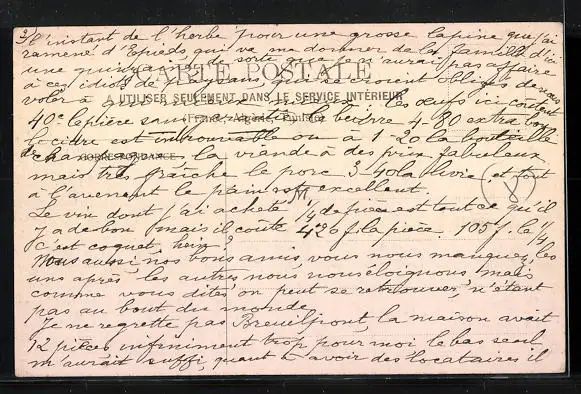 2/ l'instant de l'herbe pour une grosse lapine que j'ai
ramené d'Epieds qui va me donner de la famille d'ici
une quinzaine de sorte que je n'aurai pas affaire
CARTE POSTALE
à ces idiots de paysans qui soient obligés de nous
voler à
A UTILISER SEULEMENT DANS LE SERVICE INTÉRIEUR
les œufs ici coutent
40c pièce sans le beurre 4-80 extra bon
le cidre est introuvable ou à 1-20 la bouteille
CORRESPONDANCE
la viande à des prix fabuleux
mais très fraîche le porc 3-40 la livre et tout
à l'avenant le pain est excellent.
Le vin dont j'ai acheté 1/4 de pièce est tout ce qu'il
y a de bon mais il coute 420f la pièce. 105f. le 1/4
c'est coquet, hein?
Nous aussi nos bons amis, vous nous manquez, les
uns après les autres nous nous éloignons mais
comme vous dites on peut se retrouver, n'étant
pas au bout du monde.
Je ne regrette pas Breuilpont, la maison avait
12 pièces infiniment trop pour moi le bas seul
m'aurait suffi, quant à avoir des locataires il